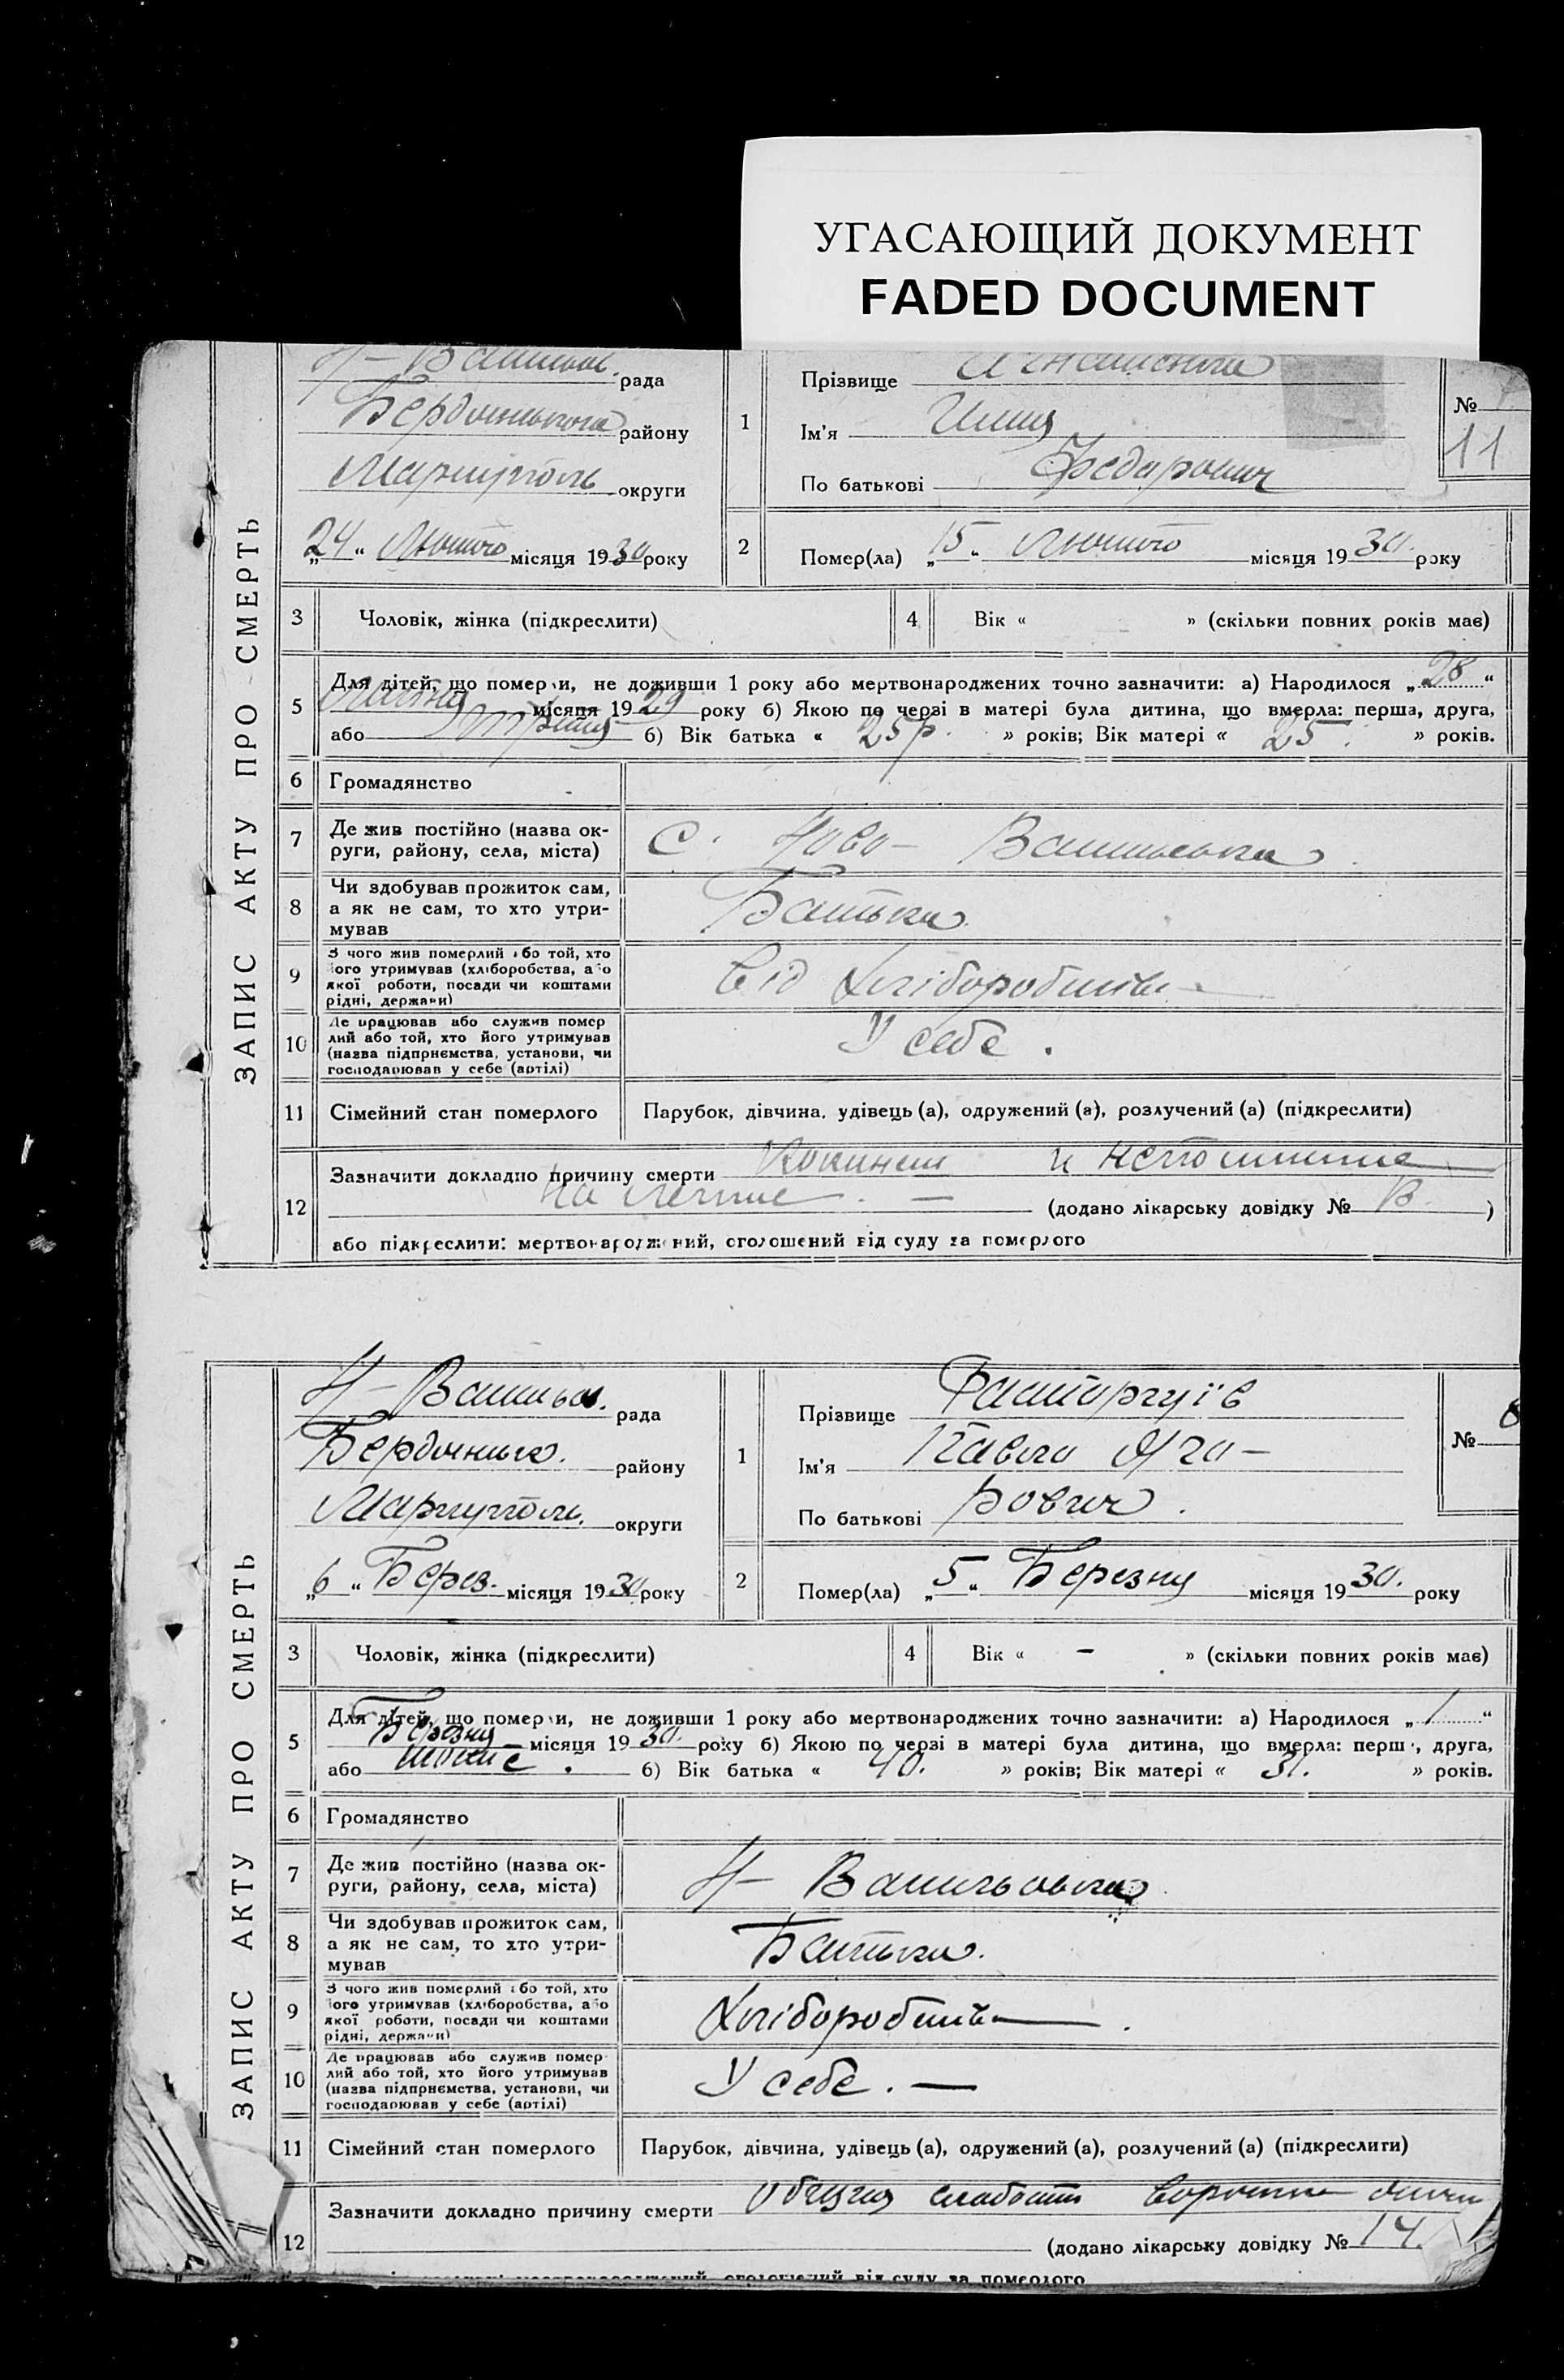 УГАСАЮЩИЙ ДОКУМЕНТ
FADED DOCUMENT
ЗАПИС АКТУ ПРО СМЕРТЬ
рада
району
Маріуполь округи
„24“ Лютого місяця 1930 року
1
Прізвище
Ім'я
По батькові Федорович
№
11
2
Помер(ла) „15“ Лютого місяця 1930 року
3 Чоловік, жінка (підкреслити)
4 Вік « » (скільки повних років має)
5 Для дітей, що померли, не доживши 1 року або мертвонароджених точно зазначити: а) Народилося „28“
місяця 1929 року б) Якою по черзі в матері була дитина, що вмерла: перша, друга,
або б) Вік батька « 25р. » років; Вік матері « 25. » років.
6 Громадянство
7 Де жив постійно (назва округи, району, села, міста) С. Ново-
8 Чи здобував прожиток сам,
а як не сам, то хто утри-
мував
Батько
9 З чого жив померлий або той, хто
його утримував (хліборобства, або
якої роботи, посади чи коштами
рідні, держави)
Від Хліборобства
10 Де працював або служив помер
лий або той, хто його утримував
(назва підприємства, установи, чи
господарював у себе (артілі)
У себе.
11 Сімейний стан померлого
Парубок, дівчина, удівець (а), одружений (а), розлучений (а) (підкреслити)
12 Зазначити докладно причину смерти
(додано лікарську довідку № )
або підкреслити: мертвонароджений, оголошений від суду за померлого
ЗАПИС АКТУ ПРО СМЕРТЬ
рада
району
округи
„6“ Берез. місяця 1930 року
1
Прізвище
Ім'я Павло
По батькові
№ 8
2
Помер(ла) „5“ Березня місяця 1930 року
3 Чоловік, жінка (підкреслити)
4 Вік « - » (скільки повних років має)
5 Для дітей, що померли, не доживши 1 року або мертвонароджених точно зазначити: а) Народилося „1“
Березня місяця 1930. року б) Якою по черзі в матері була дитина, що вмерла: перша, друга,
або б) Вік батька « 40. » років; Вік матері « 31. » років.
6 Громадянство
7 Де жив постійно (назва ок-
руги, району, села, міста)
8 Чи здобував прожиток сам,
а як не сам, то хто утри-
мував
Батько.
9 З чого жив померлий або той, хто
його утримував (хліборобства, або
якої роботи, посади чи коштами
рідні, держави)
Хліборобства
10 Де працював або служив помер
лий або той, хто його утримував
(назва підприємства, установи, чи
господарював у себе (артілі)
У себе. —
11 Сімейний стан померлого
Парубок, дівчина, удівець (а), одружений (а), розлучений (а) (підкреслити)
12 Зазначити докладно причину смерти
(додано лікарську довідку № 14.
оголошений від суду за померлого